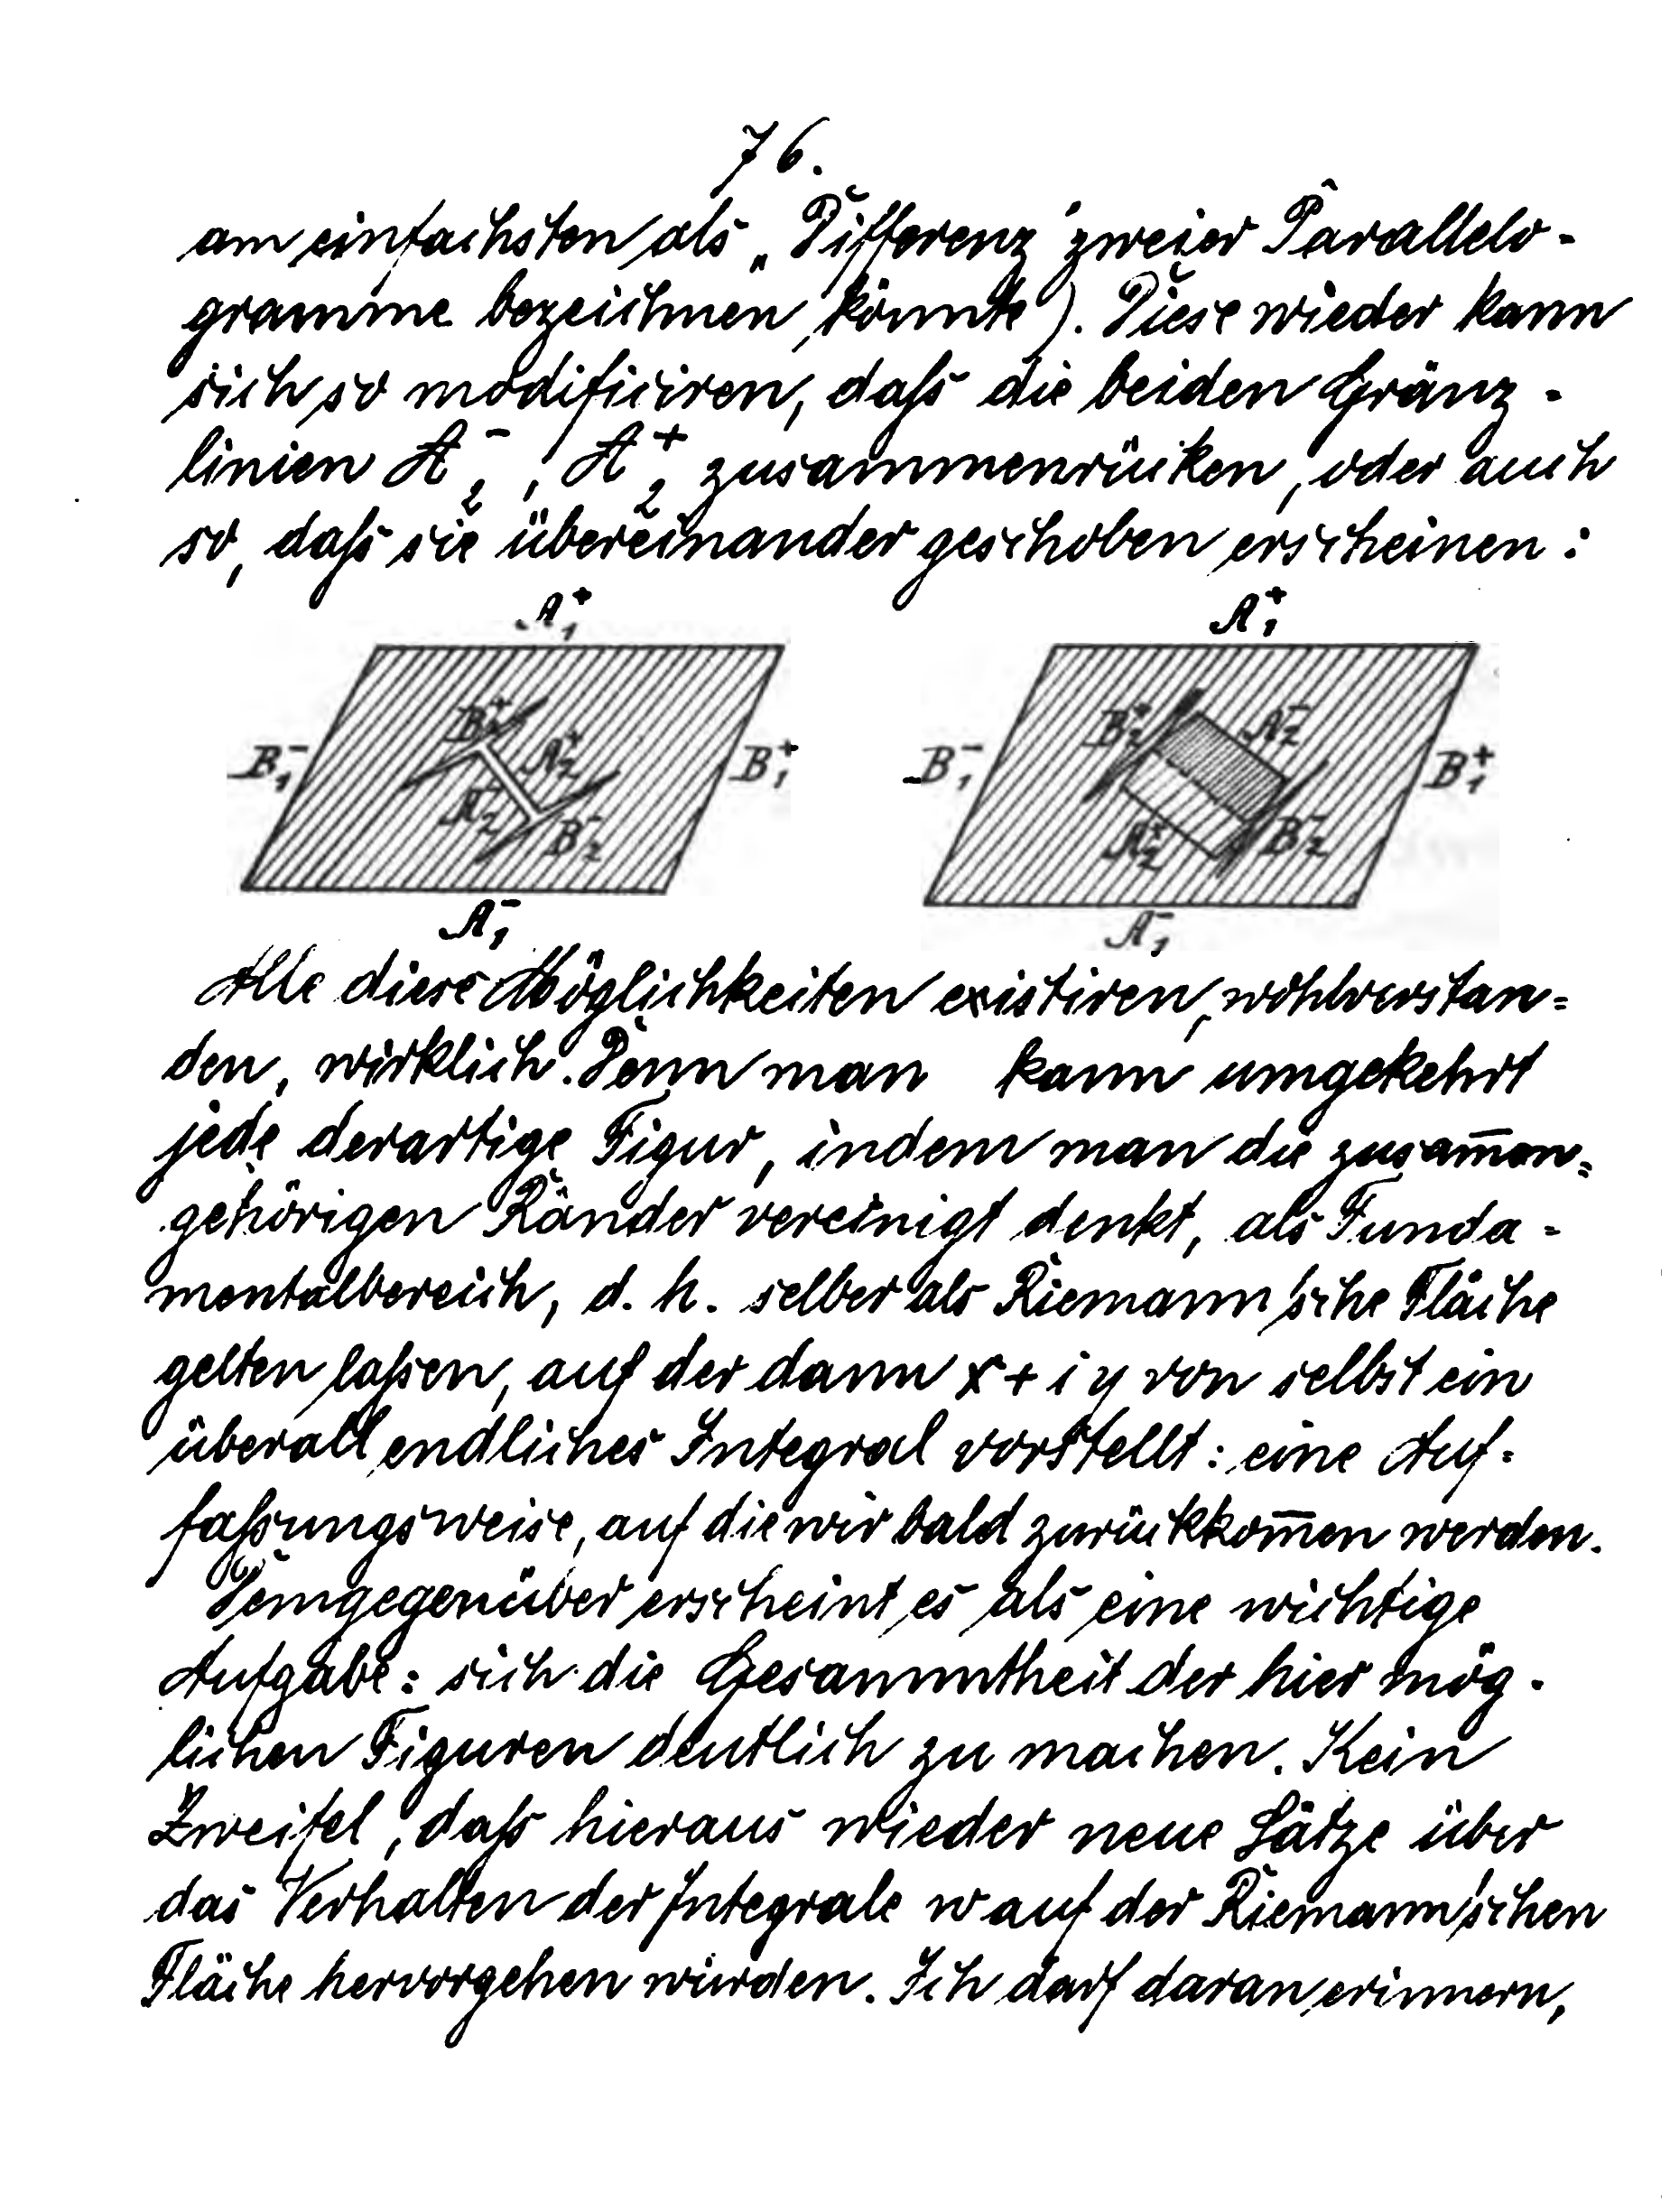 76.
am einfachsten als „Differenz" zweier Parallelo-
gramme bezeichnen könnte). Diese wieder kann
sich so modificiren, daß die beiden Gränz-
linien A₂⁻, A₂⁺ zusammenrücken, oder auch
so, daß sie übereinander geschoben erscheinen:
A₁⁺ A₁⁺
B₂⁺ A₂⁺ B₂⁺ A₂⁻
B₁⁻ B₁⁺ B₁⁻ B₁⁺
A₂⁻ B₂⁻ A₂⁺ B₂⁻
A₁⁻ A₁⁻
Alle diese Möglichkeiten existiren, wohlverstan=
den, wirklich. Denn man kann umgekehrt
jede derartige Figur, indem man die zusam̅en=
gehörigen Ränder vereinigt denkt, als Funda-
mentalbereich, d. h. selber als Riemann'sche Fläche
gelten laßen, auf der dann x + i y von selbst ein
überall endliches Integral vorstellt: eine Auf-
faßungsweise, auf die wir bald zurückkom̅en werden.
Demgegenüber erscheint es als eine wichtige
Aufgabe: sich die Gesammtheit der hier mög-
lichen Figuren deutlich zu machen. Kein
Zweifel, daß hieraus wieder neue Sätze über
das Verhalten der Integrale w auf der Riemann'schen
Fläche hervorgehen würden. Ich darf daran erinnern,